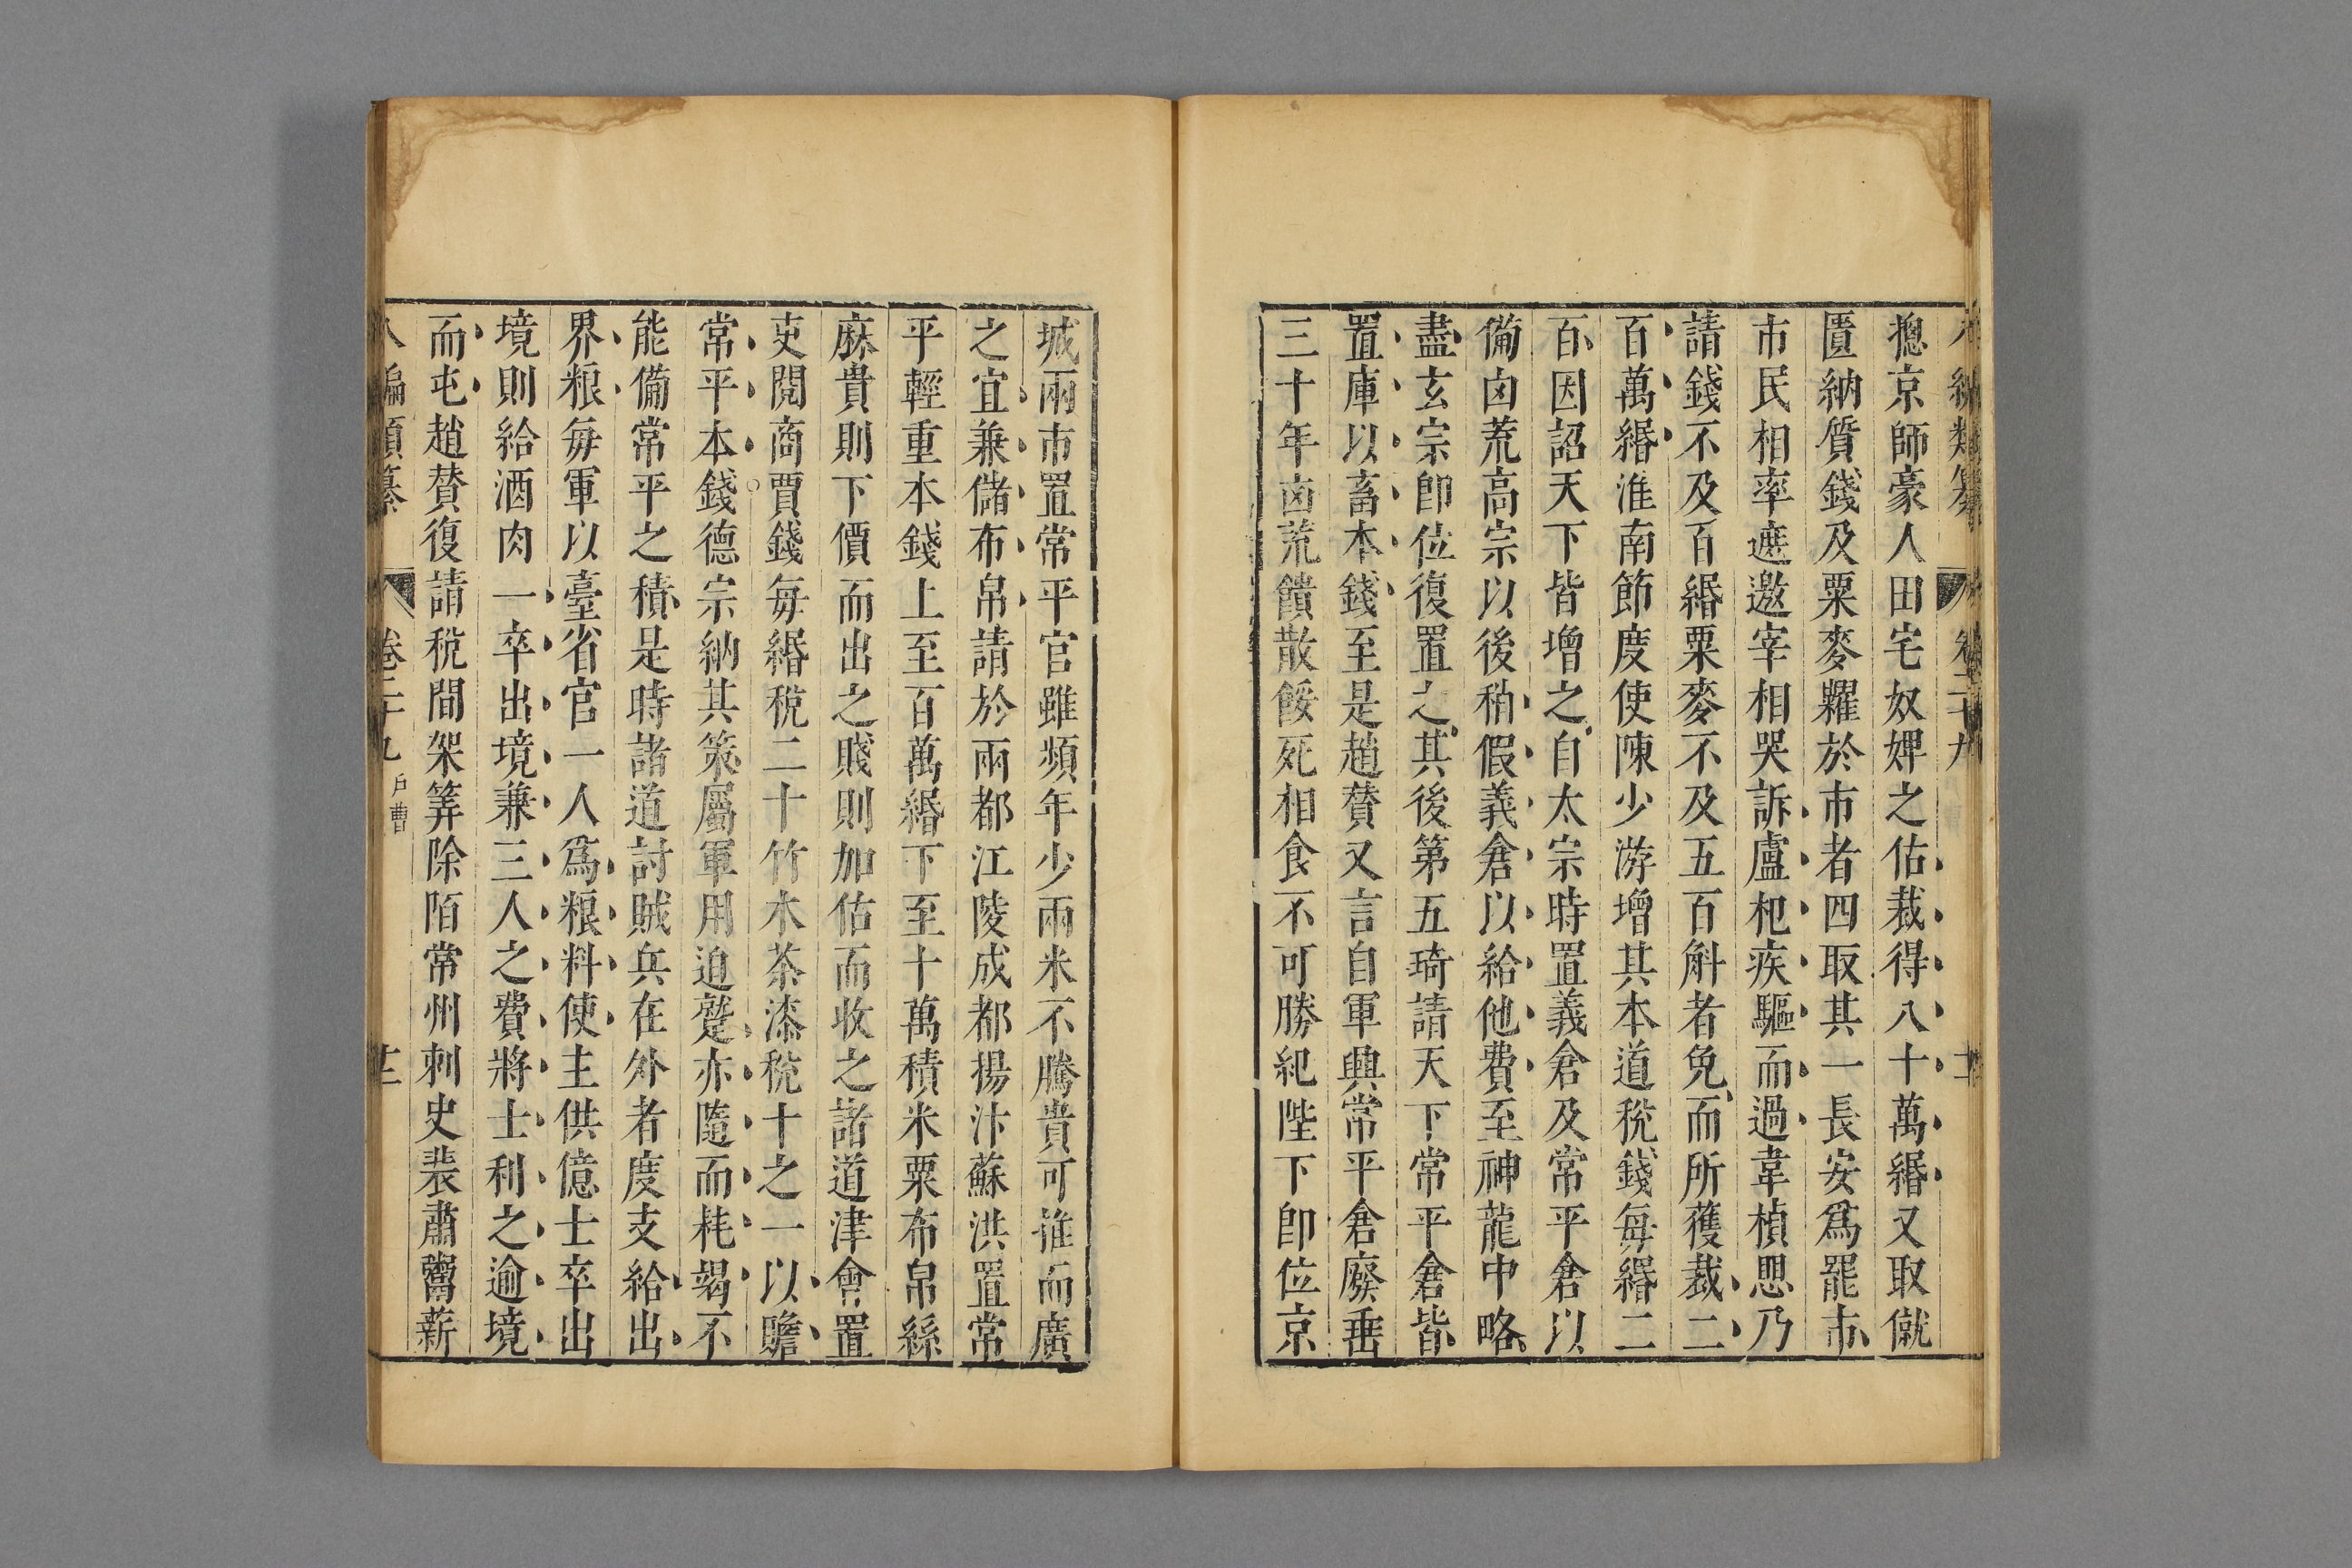 八編類纂 卷二十九
摠京師豪人田宅奴婢之估裁得八十萬緡又取僦
匱納質錢及粟麥糶於市者四取其一長安爲罷市
市民相率遮邀宰相哭訴盧杞疾驅而過韋楨思乃
請錢不及百緡粟麥不及五百斛者免而所獲裁二
百萬緡淮南節度使陳少游增其本道稅錢每緡二
百因詔天下皆增之自太宗時置義倉及常平倉以
備凶荒高宗以後稍假義倉以給他費至神龍中略
盡玄宗卽位復置之其後第五琦請天下常平倉皆
置庫以畜本錢至是趙贊又言自軍興常平倉廢垂
三十年凶荒饋散餒死相食不可勝紀陛下卽位京
城兩市置常平官雖頻年少雨米不騰貴可推而廣
之宜兼儲布帛請於兩都江陵成都揚汴蘇洪置常
平輕重本錢上至百萬緡下至十萬積米粟布帛絲
麻貴則下價而出之賤則加估而收之諸道津會置
吏閱商賈錢每緡稅二十竹木茶漆稅十之一以贍
常平本錢德宗納其策屬軍用迫蹙亦隨而耗竭不
能備常平之積是時諸道討賊兵在外者度支給出
界粮每軍以臺省官一人爲粮料使主供億士卒出
境則給酒肉一卒出境兼三人之費將士利之逾境
而屯趙贊復請稅間架筭除陌常州刺史裴肅鬻薪
八編類纂 卷二十九 戶曹 十二